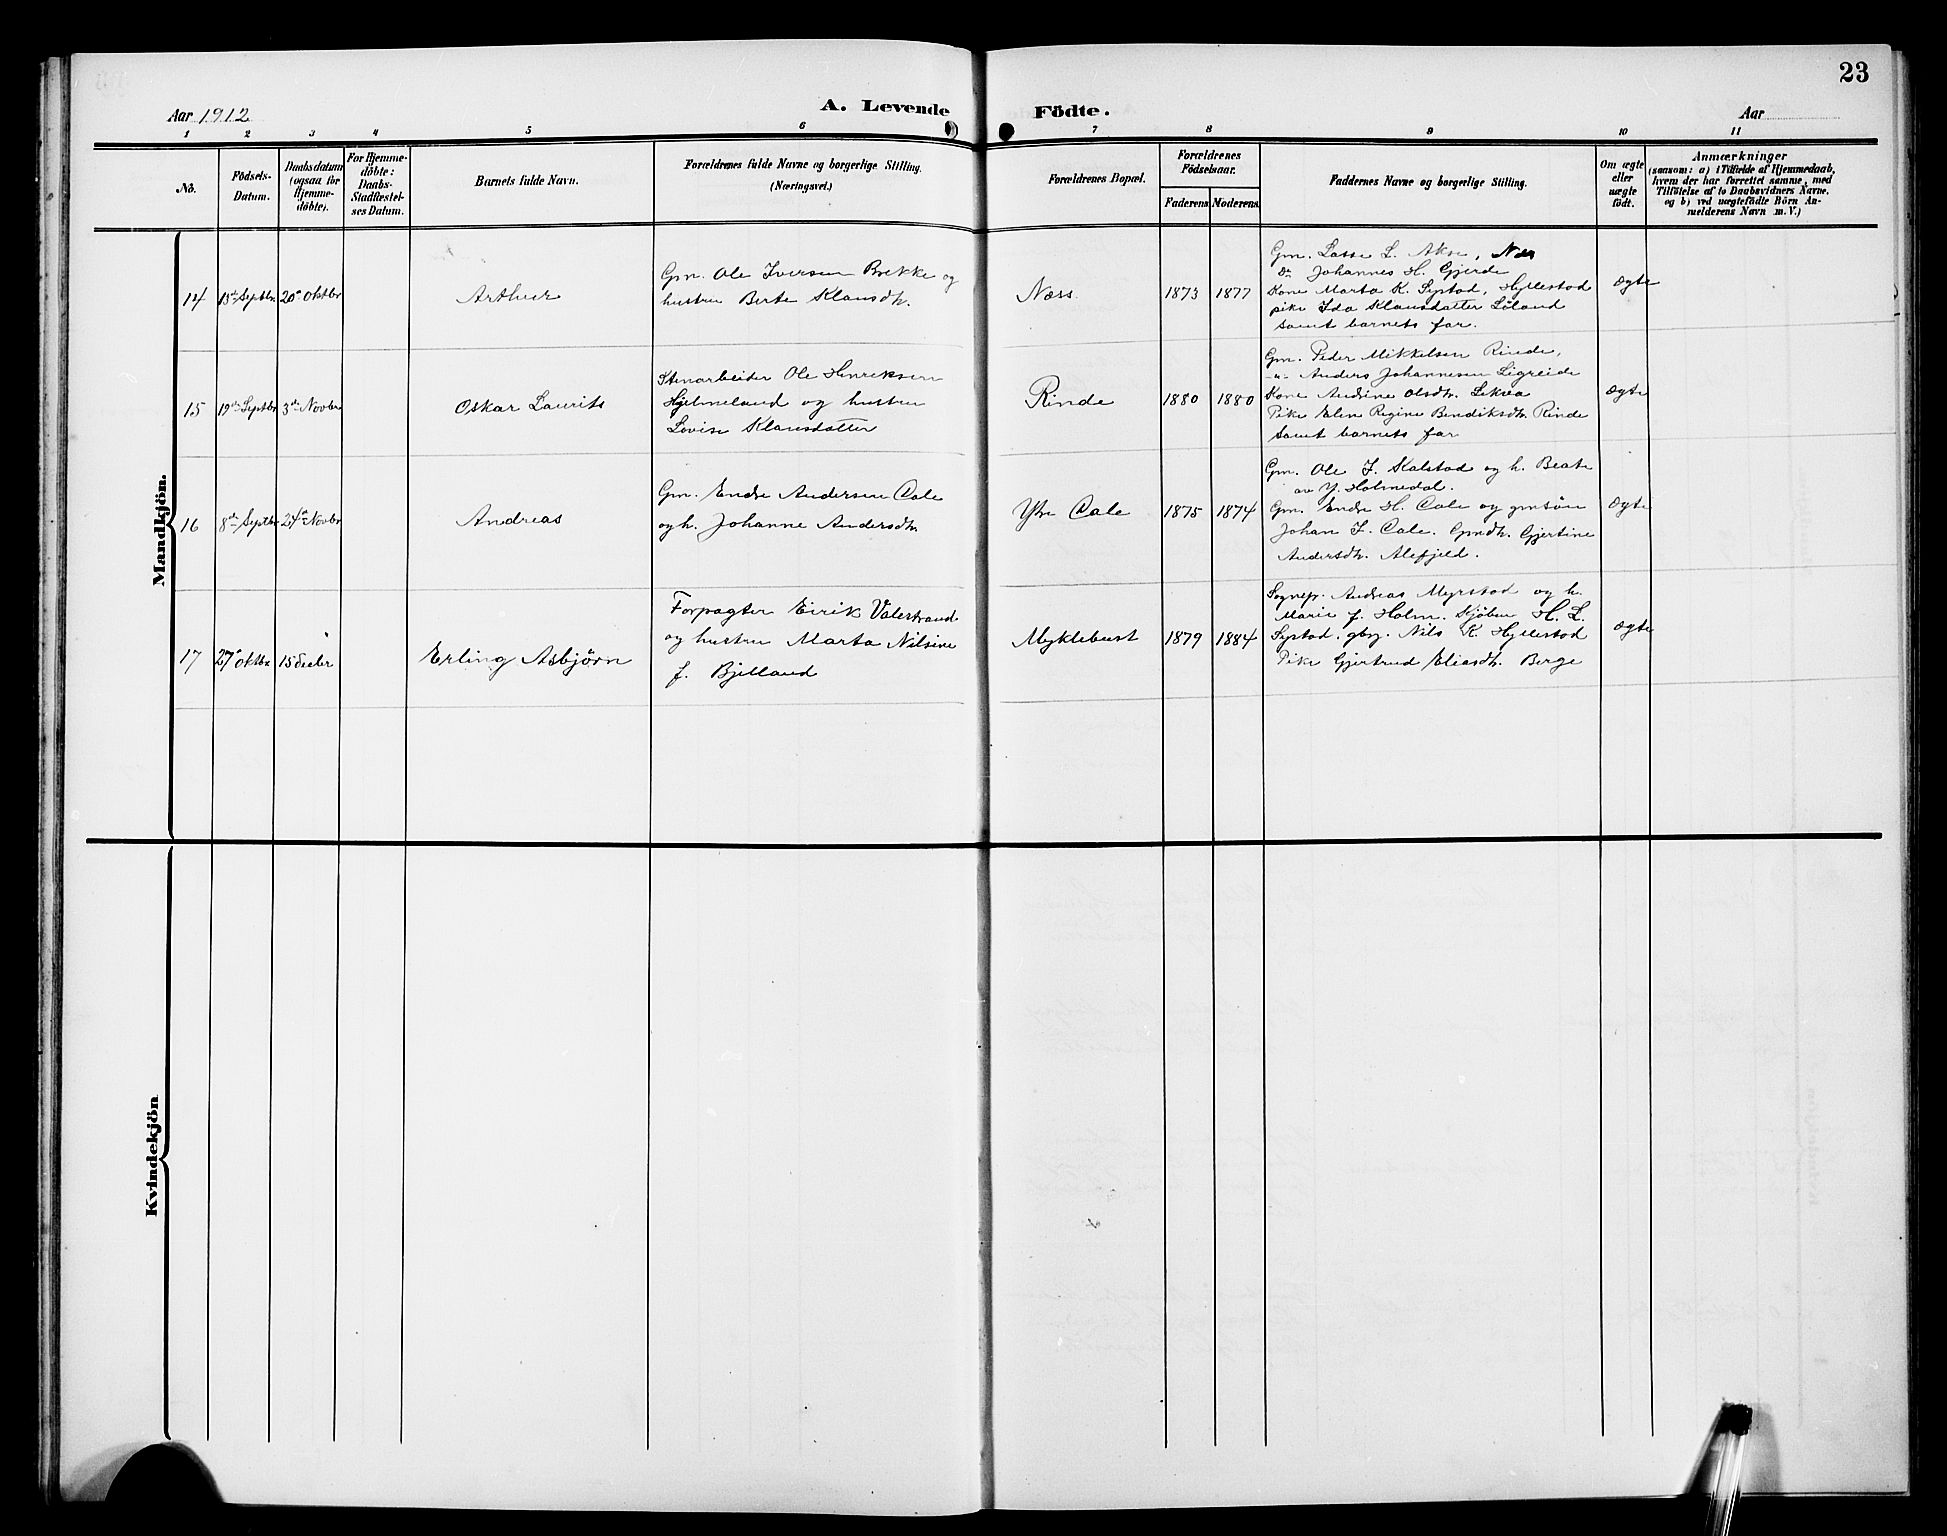 23
Aar 1912
A. Levende Födte.
Aar
1 2 3 4 5 6 7 8 9 10 11
Nô.
Födsels-
Datum.
Daabsdatum
(ogsaa for
Hjemme-
döbte).
For Hjemme-
döbte:
Daabs-
Stadfestel-
ses Datum.
Barnets fulde Navn.
Forældrenes fulde Navne og borgerlige Stilling.
(Næringsvei.)
Forældrenes Bopæl.
Forældrenes
Födselsaar.
Faderens
Moderens
Faddernes Navne og borgerlige Stilling.
Om ægte
eller
uægte
födt.
Anmærkninger
(saasom: a) i Tilfælde af Hjemmedaab,
hvem der har forrettet samme, med
Tilföielse af to Daabsvidners Navne,
og b) ved uægtefödte Börn An-
melderens Navn m. V.)
Mandkjön.
14
15de Septbr
20de Oktbr
Arthur
Gm. Ole Iversen Brekke og
hustru Berte Klausdtr.
Næss
1873
1877
Gm. Lasse L. Akse, Næs
Do Johannes H. Gjerde
Kone Marta K. Systad, Hyllestad
pike Ida Klausdatter Løland
samt barnets far.
Ægte
15
19de Septbr
3die Novbr
Oskar Laurits
Stenarbeider Ole Henriksen
Hjelmeland og hustru
Lovise Klausdatter
Rinde
1880
1880
Gm. Peder Mikkelsen Rinde,
-"- Anders Johannesen Ligreide
Kone Andrine Olsdtr. Lekva
Pike Elen Regine Bendiksdtr. Rinde
samt barnets far
Ægte
16
8de Septbr
24de Novbr
Andreas
Gm. Endre Andersen Cale
og h. Johanne Andersdtr.
Ytre Cale
1875
1874
Gm. Ole J. Kalstad og h. Beate
av Y. Holmedal.
Gm. Endre H. Cale og gmsøn
Johan J. Cale. Gmdtr. Gjertine
Andersdtr. Alefjeld.
Ægte
17
27de Oktbr
15 Decbr
Erling Asbjørn
Forpagter Eirik Valestrand
og hustru Marta Nilsine
f. Bjelland
Myklebust
1879
1884
Sognepr. Andreas Myrstad og h.
Marie f. Holm. Skjøben H. L.
Systad. gbr. Nils K. Hyllestad
Pike Gjertrud Eliasdtr. Berge
Ægte
Kvindekjön